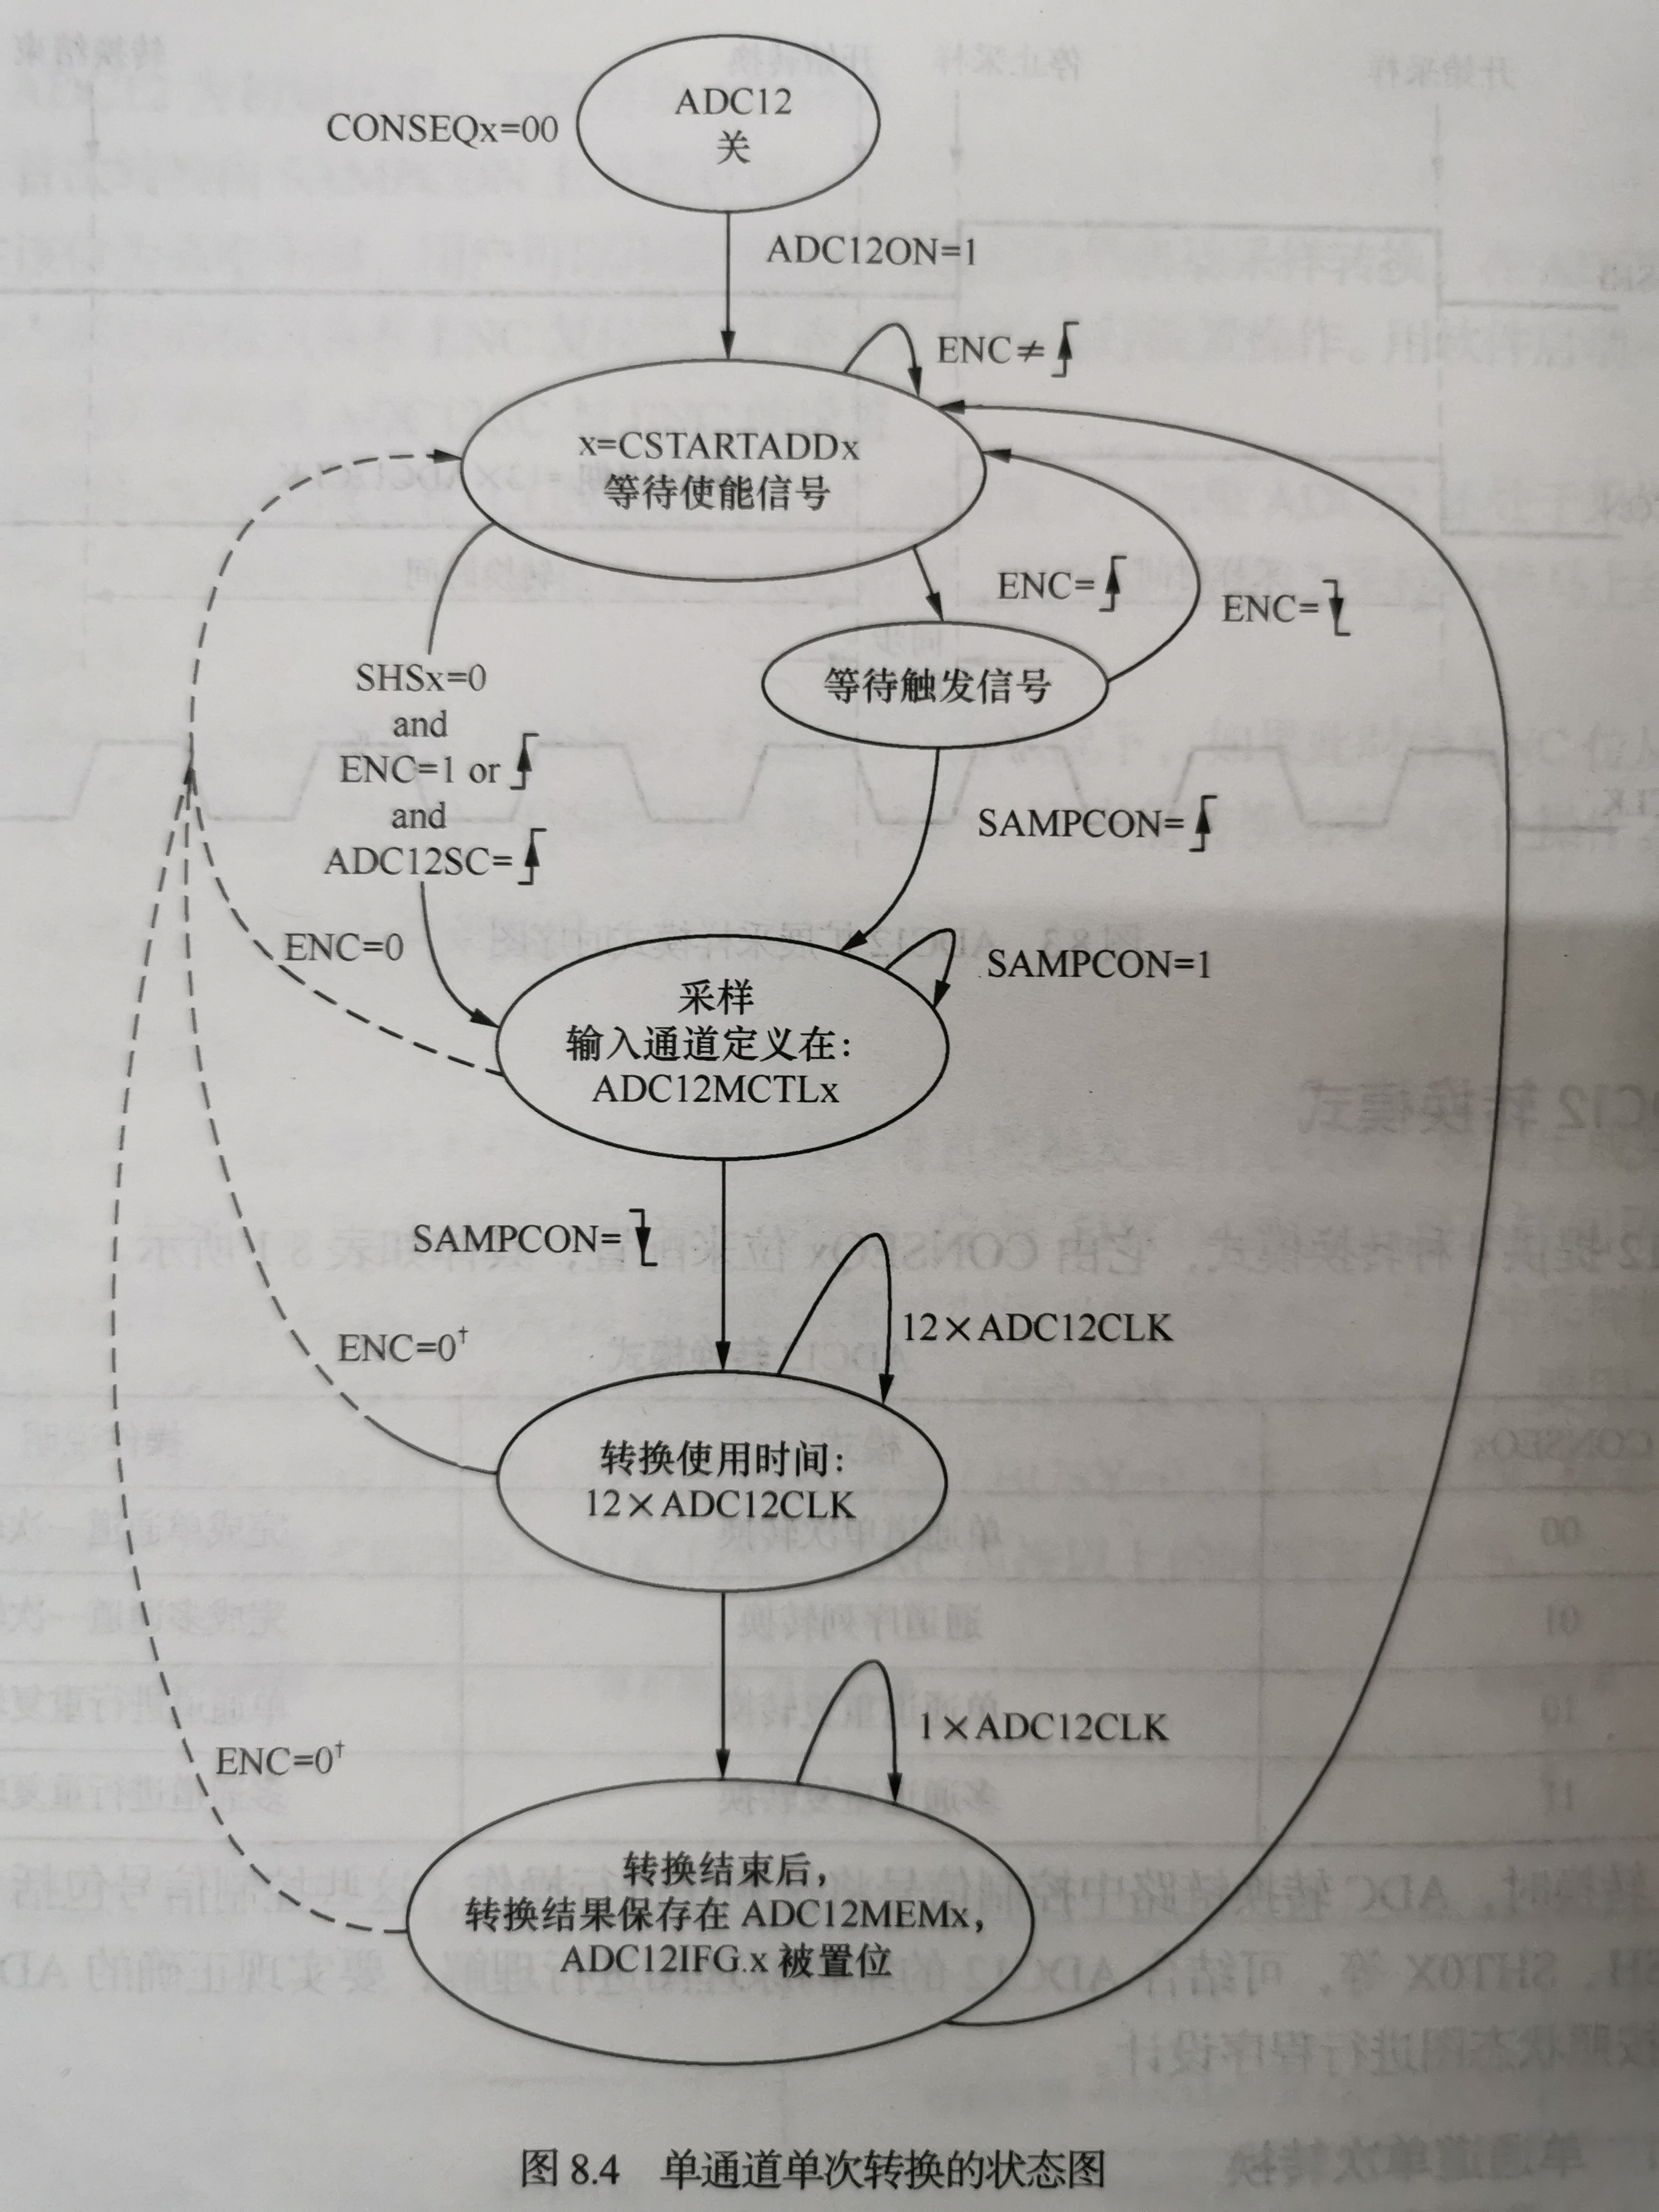 ADC12
关
CONSEQx=00
ADC12ON=1
ENC≠
x=CSTARTADDx
等待使能信号
ENC=
ENC=
等待触发信号
SHSx=0
and
ENC=1 or
and
ADC12SC=
SAMPCON=
ENC=0
SAMPCON=1
采样
输入通道定义在：
ADC12MCTLx
SAMPCON=
12×ADC12CLK
ENC=0†
转换使用时间：
12×ADC12CLK
1×ADC12CLK
ENC=0†
转换结束后，
转换结果保存在 ADC12MEMx，
ADC12IFG.x 被置位
图 8.4 单通道单次转换的状态图